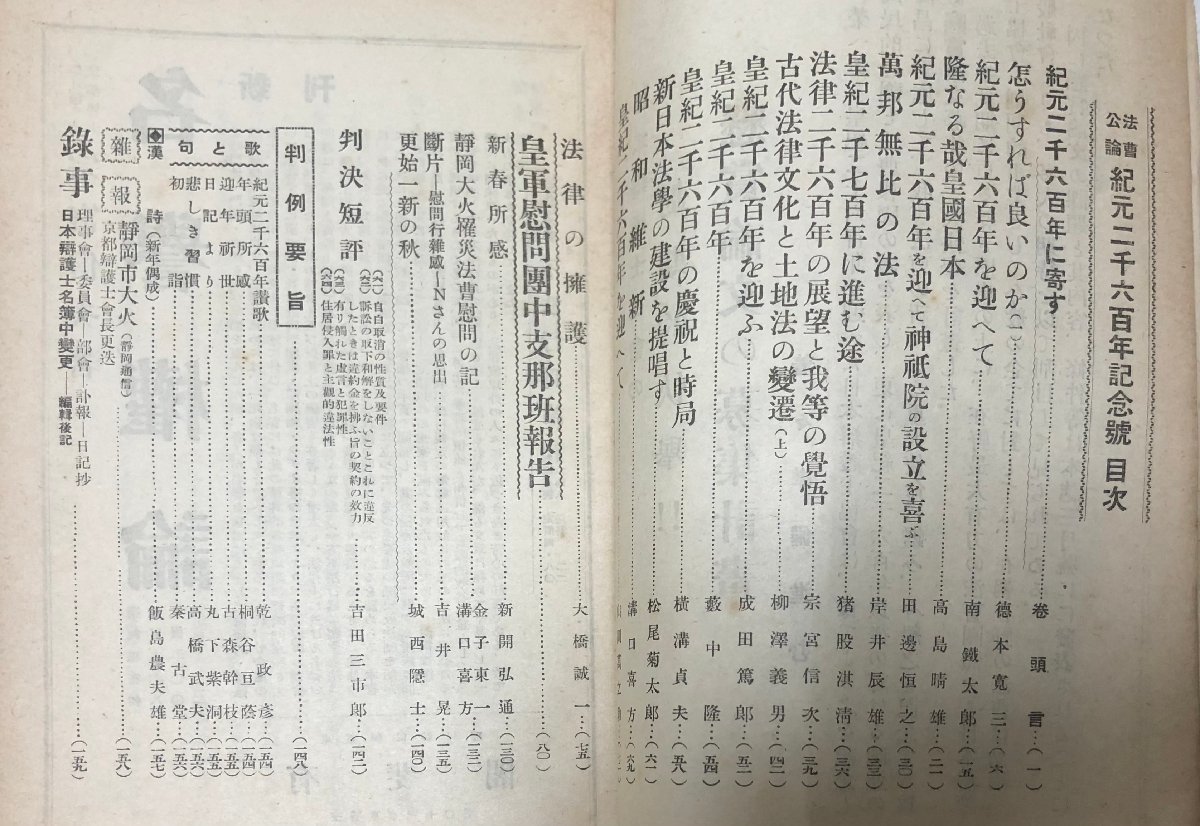 法曹公論 紀元二千六百年記念號 目次
紀元二千六百年に寄す……卷頭言…(一)
怎うすれば良いのか(一)……德本寬三…(六)
紀元二千六百年を迎へて……南鐵太郎…(一五)
隆なる哉皇國日本……高島晴雄…(二一)
紀元二千六百年を迎へて神祇院の設立を喜ぶ……田邊恒之…(三〇)
萬邦無比の法……岸井辰雄…(三三)
皇紀二千七百年に進む途……猪股淇淸…(三六)
法律二千六百年の展望と我等の覺悟……宗宮信次…(三九)
古代法律文化と土地法の變遷(上)……柳澤義男…(四二)
皇紀二千六百年を迎ふ……成田篤郎…(五二)
皇紀二千六百年……藪中隆…(五四)
皇紀二千六百年の慶祝と時局……橫溝貞夫…(五八)
新日本法學の建設を提唱す……松尾菊太郎…(六一)
昭和維新……溝口喜方…(六九)
皇紀二千六百年を迎へて
法律の擁護……大橋誠一…(七五)
皇軍慰問團中支那班報告……(八〇)
新春所感……新開弘通…(一三〇)
靜岡大火罹災法曹慰問の記……金子東一 溝口喜方…(一三二)
斷片―慰問行雜感―Nさんの思出……吉井晃…(一三五)
更始一新の秋……城西隱士…(一四〇)
判決短評……吉田三市郎…(一四二)
(其一)自白取消の性質及要件
(其二)訴訟の取下和解をしないことこれに違反したときは違約金を拂ふ旨の契約の效力
(其三)有り觸れた虛言と犯罪性
(其四)住居侵入罪と主觀的違法性
判例要旨……(一四八)
歌と句
紀元二千六百年讃歌……乾政彥…(一五四)
年頭所感……桐谷亘蔭…(一五四)
迎年祈世……古森幹枝…(一五五)
日記より……丸下紫洞…(一五五)
悲しき習慣……高橋武夫…(一五六)
初詣……秦古堂…(一五六)
◆漢詩(新年偶成)……飯島農夫雄…(一五七)
雜報 靜岡市大火(靜岡通信) 京都辯護士會長更迭……(一五八)
錄事 理事會―委員會―部會―訃報―日記抄 日本辯護士名簿中變更――編輯後記……(一五九)